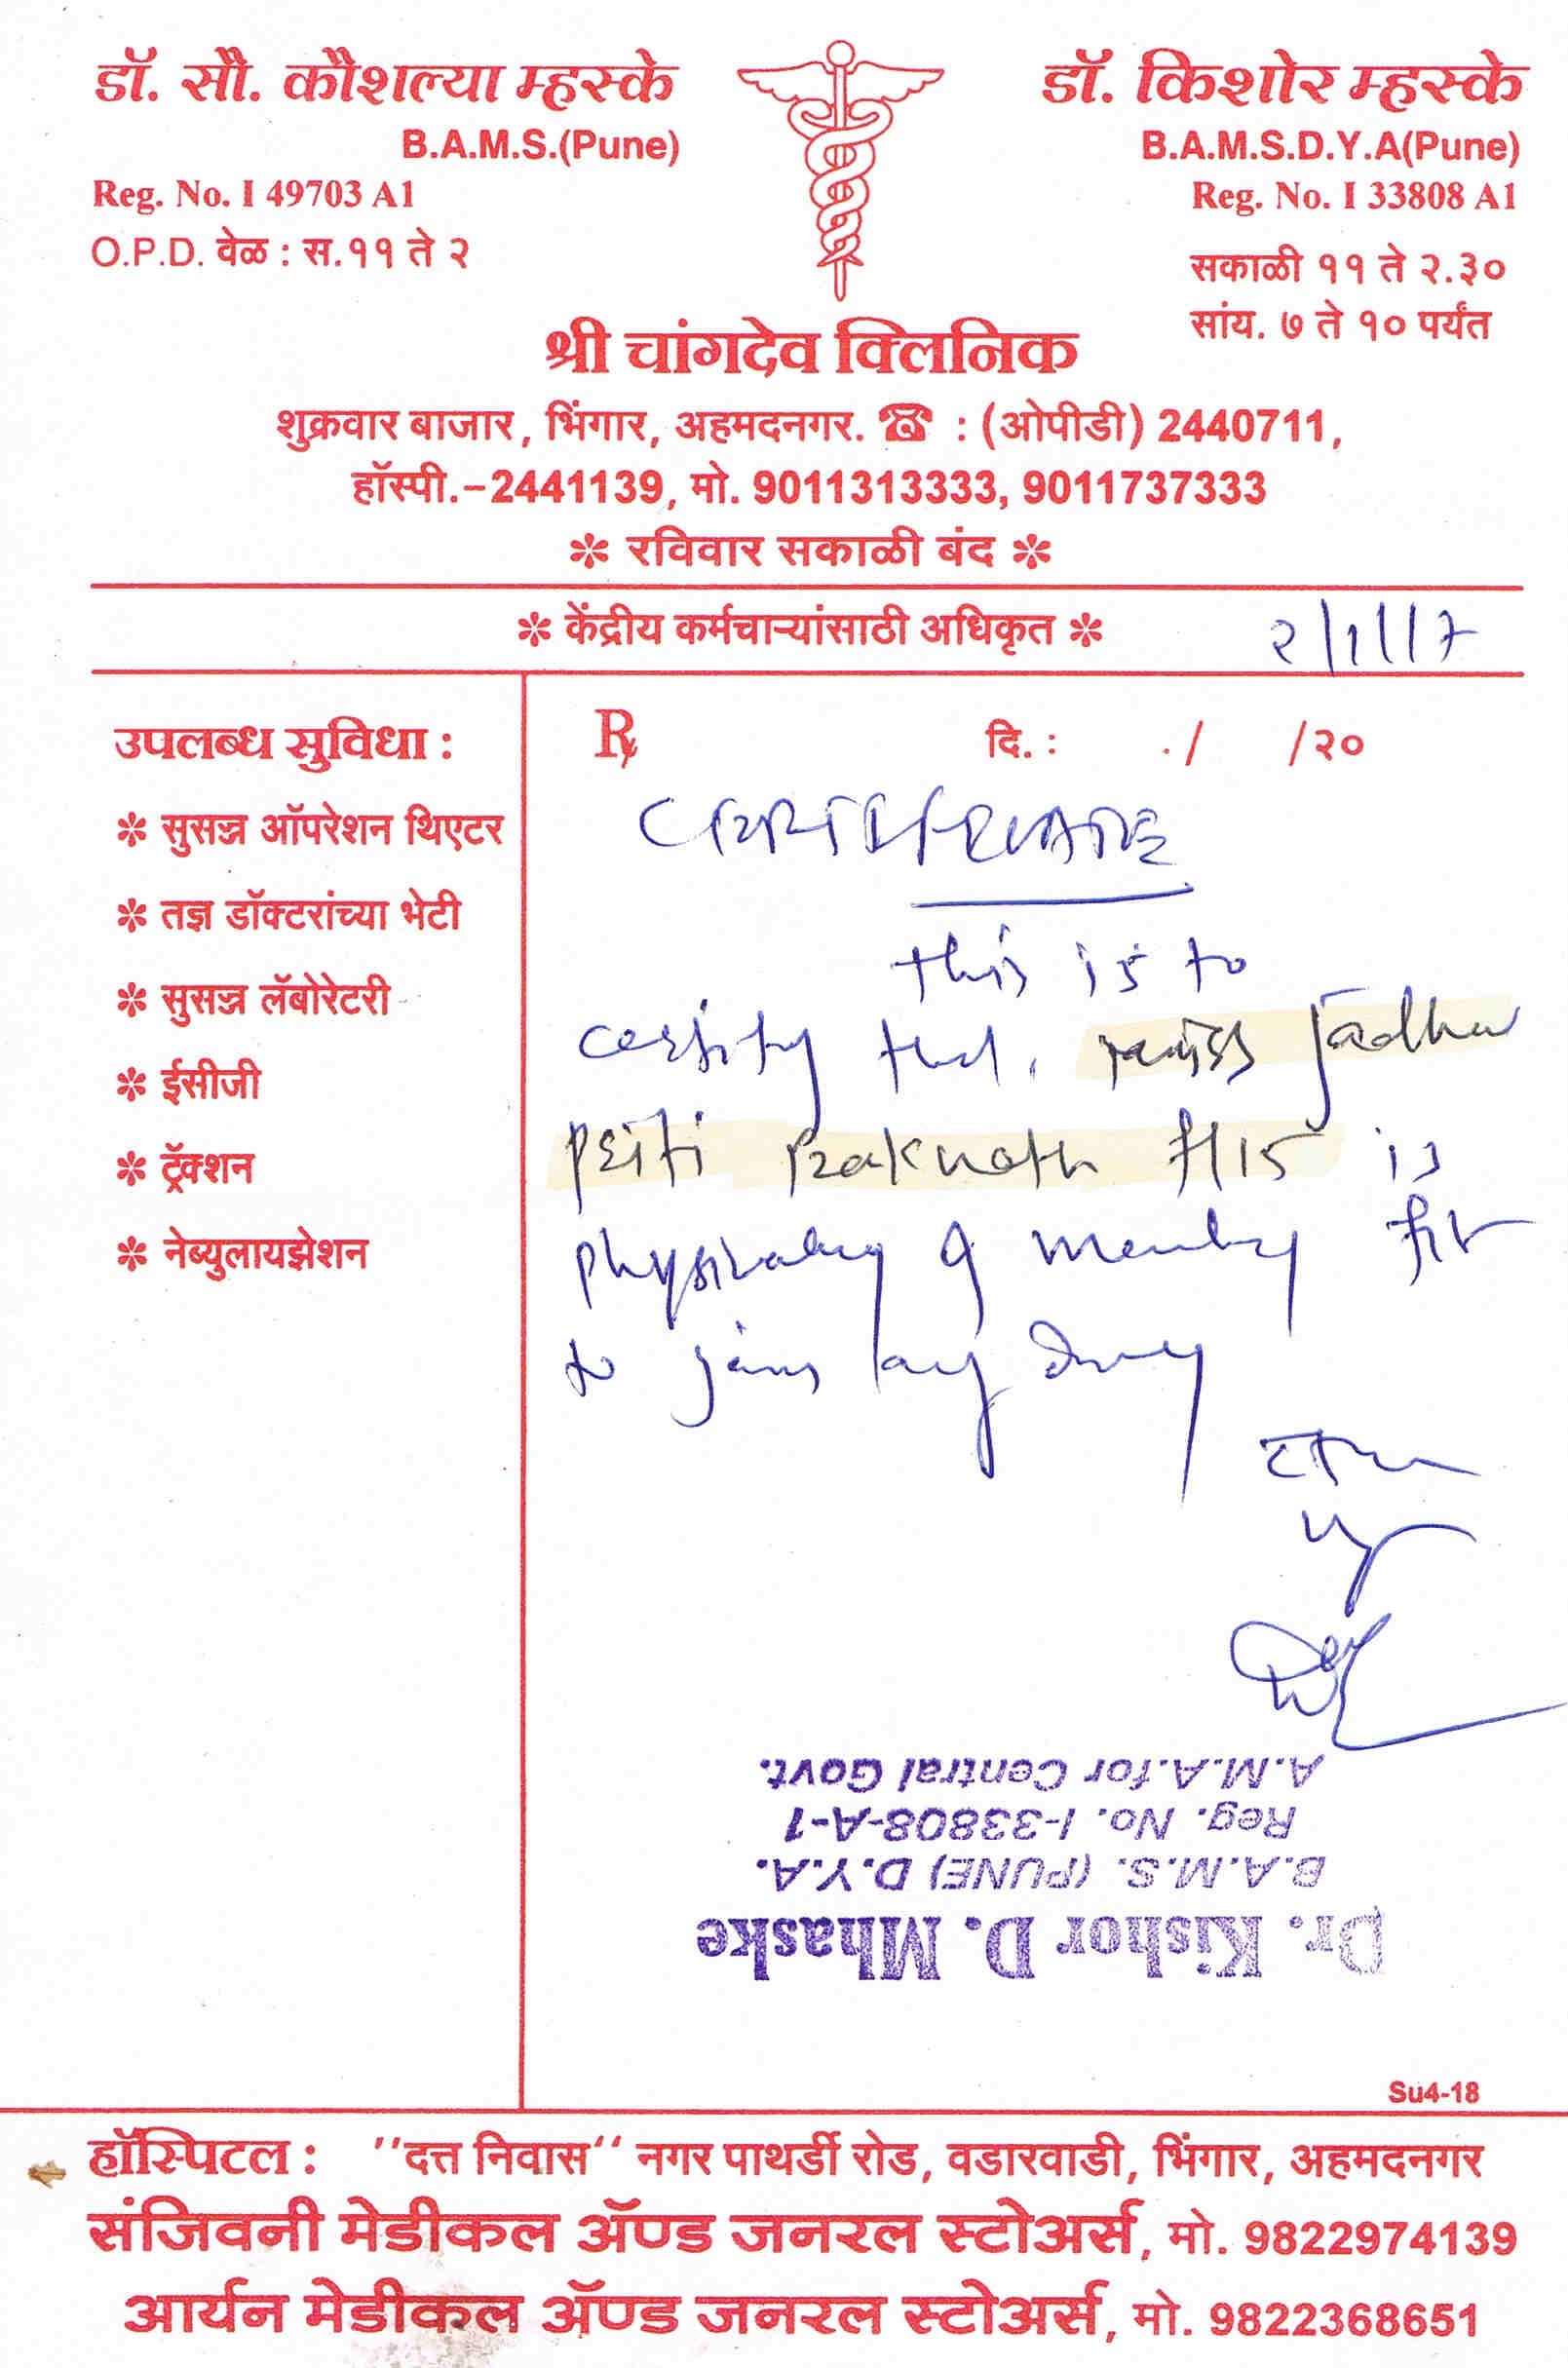 डॉ. सौ. कौशल्या म्हस्के
B.A.M.S.(Pune)
Reg. No. I 49703 A1
O.P.D. वेळ : स.११ ते २
डॉ. किशोर म्हस्के
B.A.M.S.D.Y.A(Pune)
Reg. No. I 33808 A1
सकाळी ११ ते २.३०
सांय. ७ ते १० पर्यंत
श्री चांगदेव क्लिनिक
शुक्रवार बाजार, भिंगार, अहमदनगर. ☎ : (ओपीडी) 2440711,
हॉस्पी.-2441139, मो. 9011313333, 9011737333
* रविवार सकाळी बंद *
* केंद्रीय कर्मचाऱ्यांसाठी अधिकृत *
२/1/17
उपलब्ध सुविधा :
* सुसज्ज ऑपरेशन थिएटर
* तज्ञ डॉक्टरांच्या भेटी
* सुसज्ज लॅबोरेटरी
* ईसीजी
* ट्रॅक्शन
* नेब्युलायझेशन
℞ दि. : / /२०
CERTIFICATE
this is to
certify that miss Jadhav
is
physically & mentally fit
to join any
Dr. Kishor D. Mhaske
B.A.M.S. (PUNE) D.Y.A.
Reg. No. I-33808-A-1
A.M.A. for Central Govt.
Su4-18
हॉस्पिटल : ''दत्त निवास'' नगर पाथर्डी रोड, वडारवाडी, भिंगार, अहमदनगर
संजिवनी मेडीकल ॲण्ड जनरल स्टोअर्स, मो. 9822974139
आर्यन मेडीकल ॲण्ड जनरल स्टोअर्स, मो. 9822368651